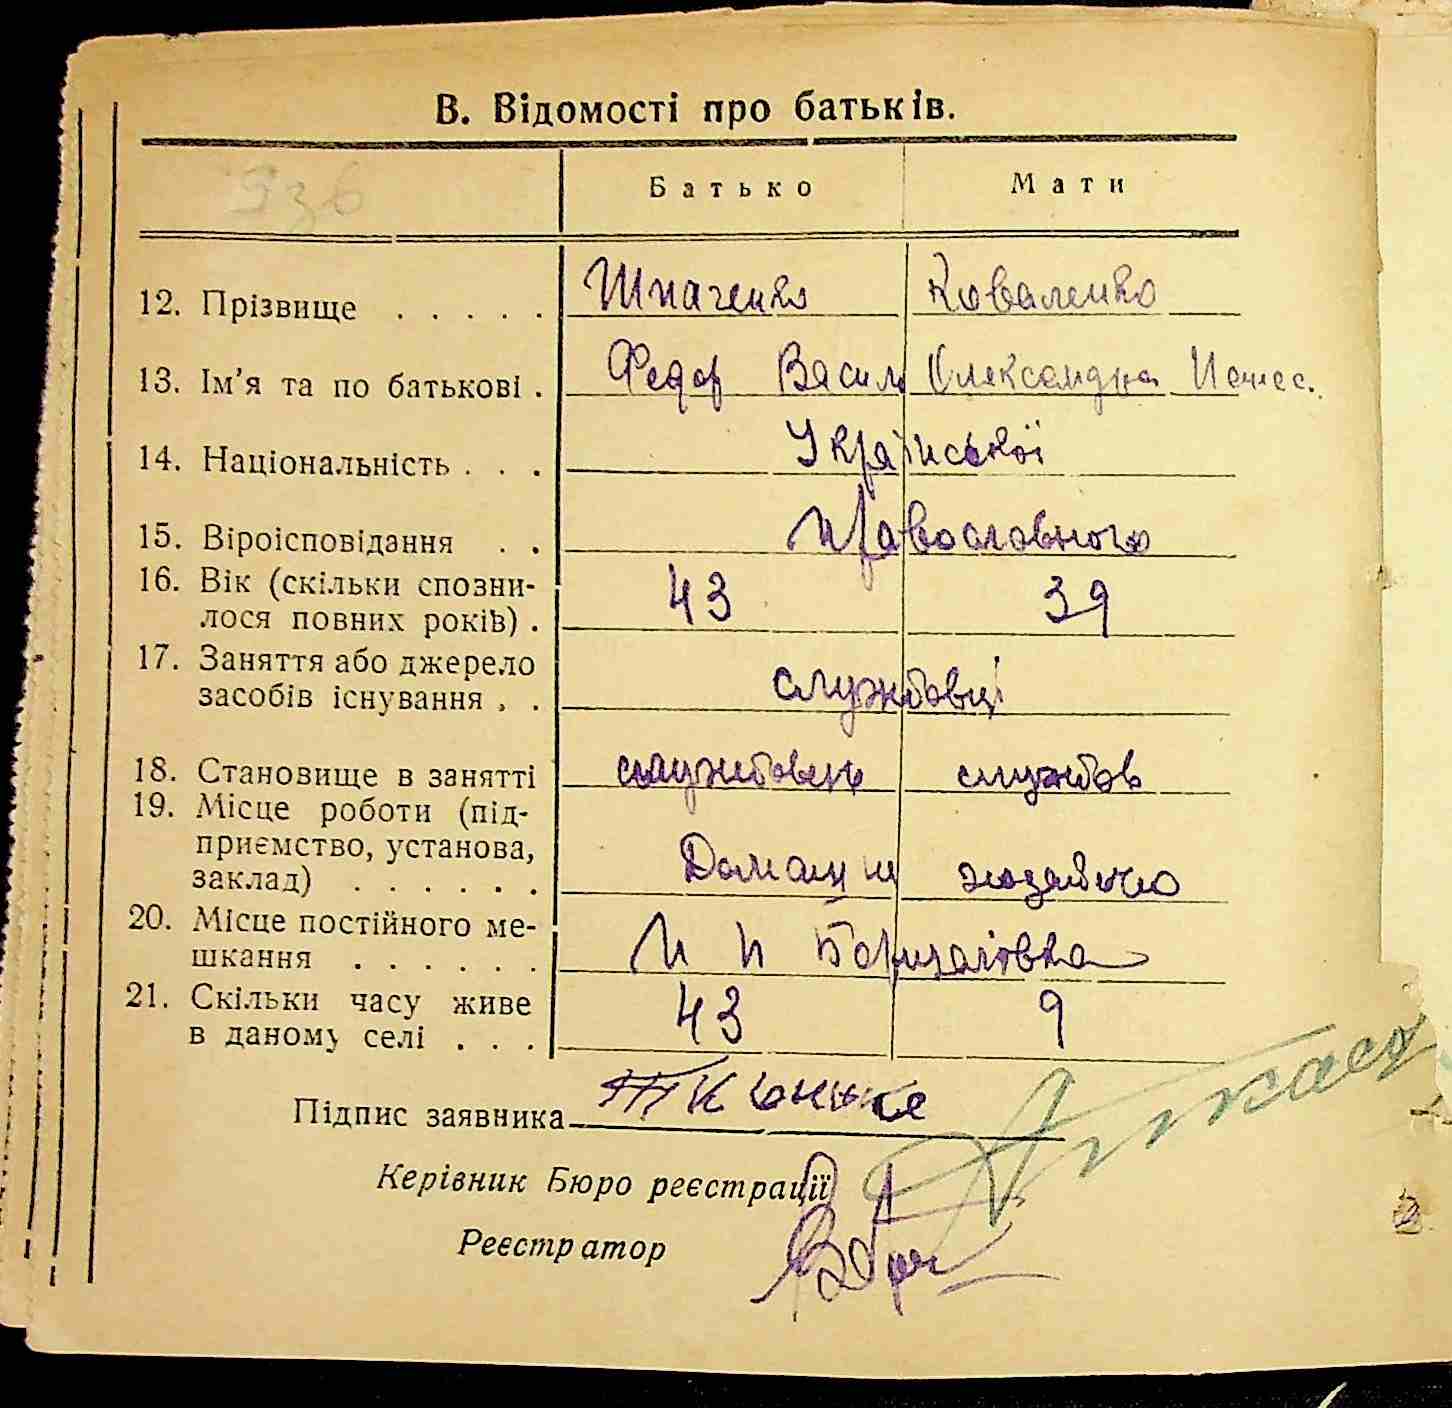 В. Відомості про батьків.
Батько Мати
12. Прізвище . . . . . Шпаченко Коваленко
13. Ім’я та по батькові . Федор Васил Олександра
14. Національність . . . Української
15. Віроісповідання . . православного
16. Вік (скільки спозни-
лося повних років) . 43 39
17. Заняття або джерело
засобів існування . . службовці
18. Становище в занятті службовець службов
19. Місце роботи (під-
приємство, установа,
заклад) . . . . . . Домашн хозяйство
20. Місце постійного ме-
шкання . . . . . .
21. Скільки часу живе
в даному селі . . . 43 9
Підпис заявника
Керівник Бюро реєстрації
Реєстратор